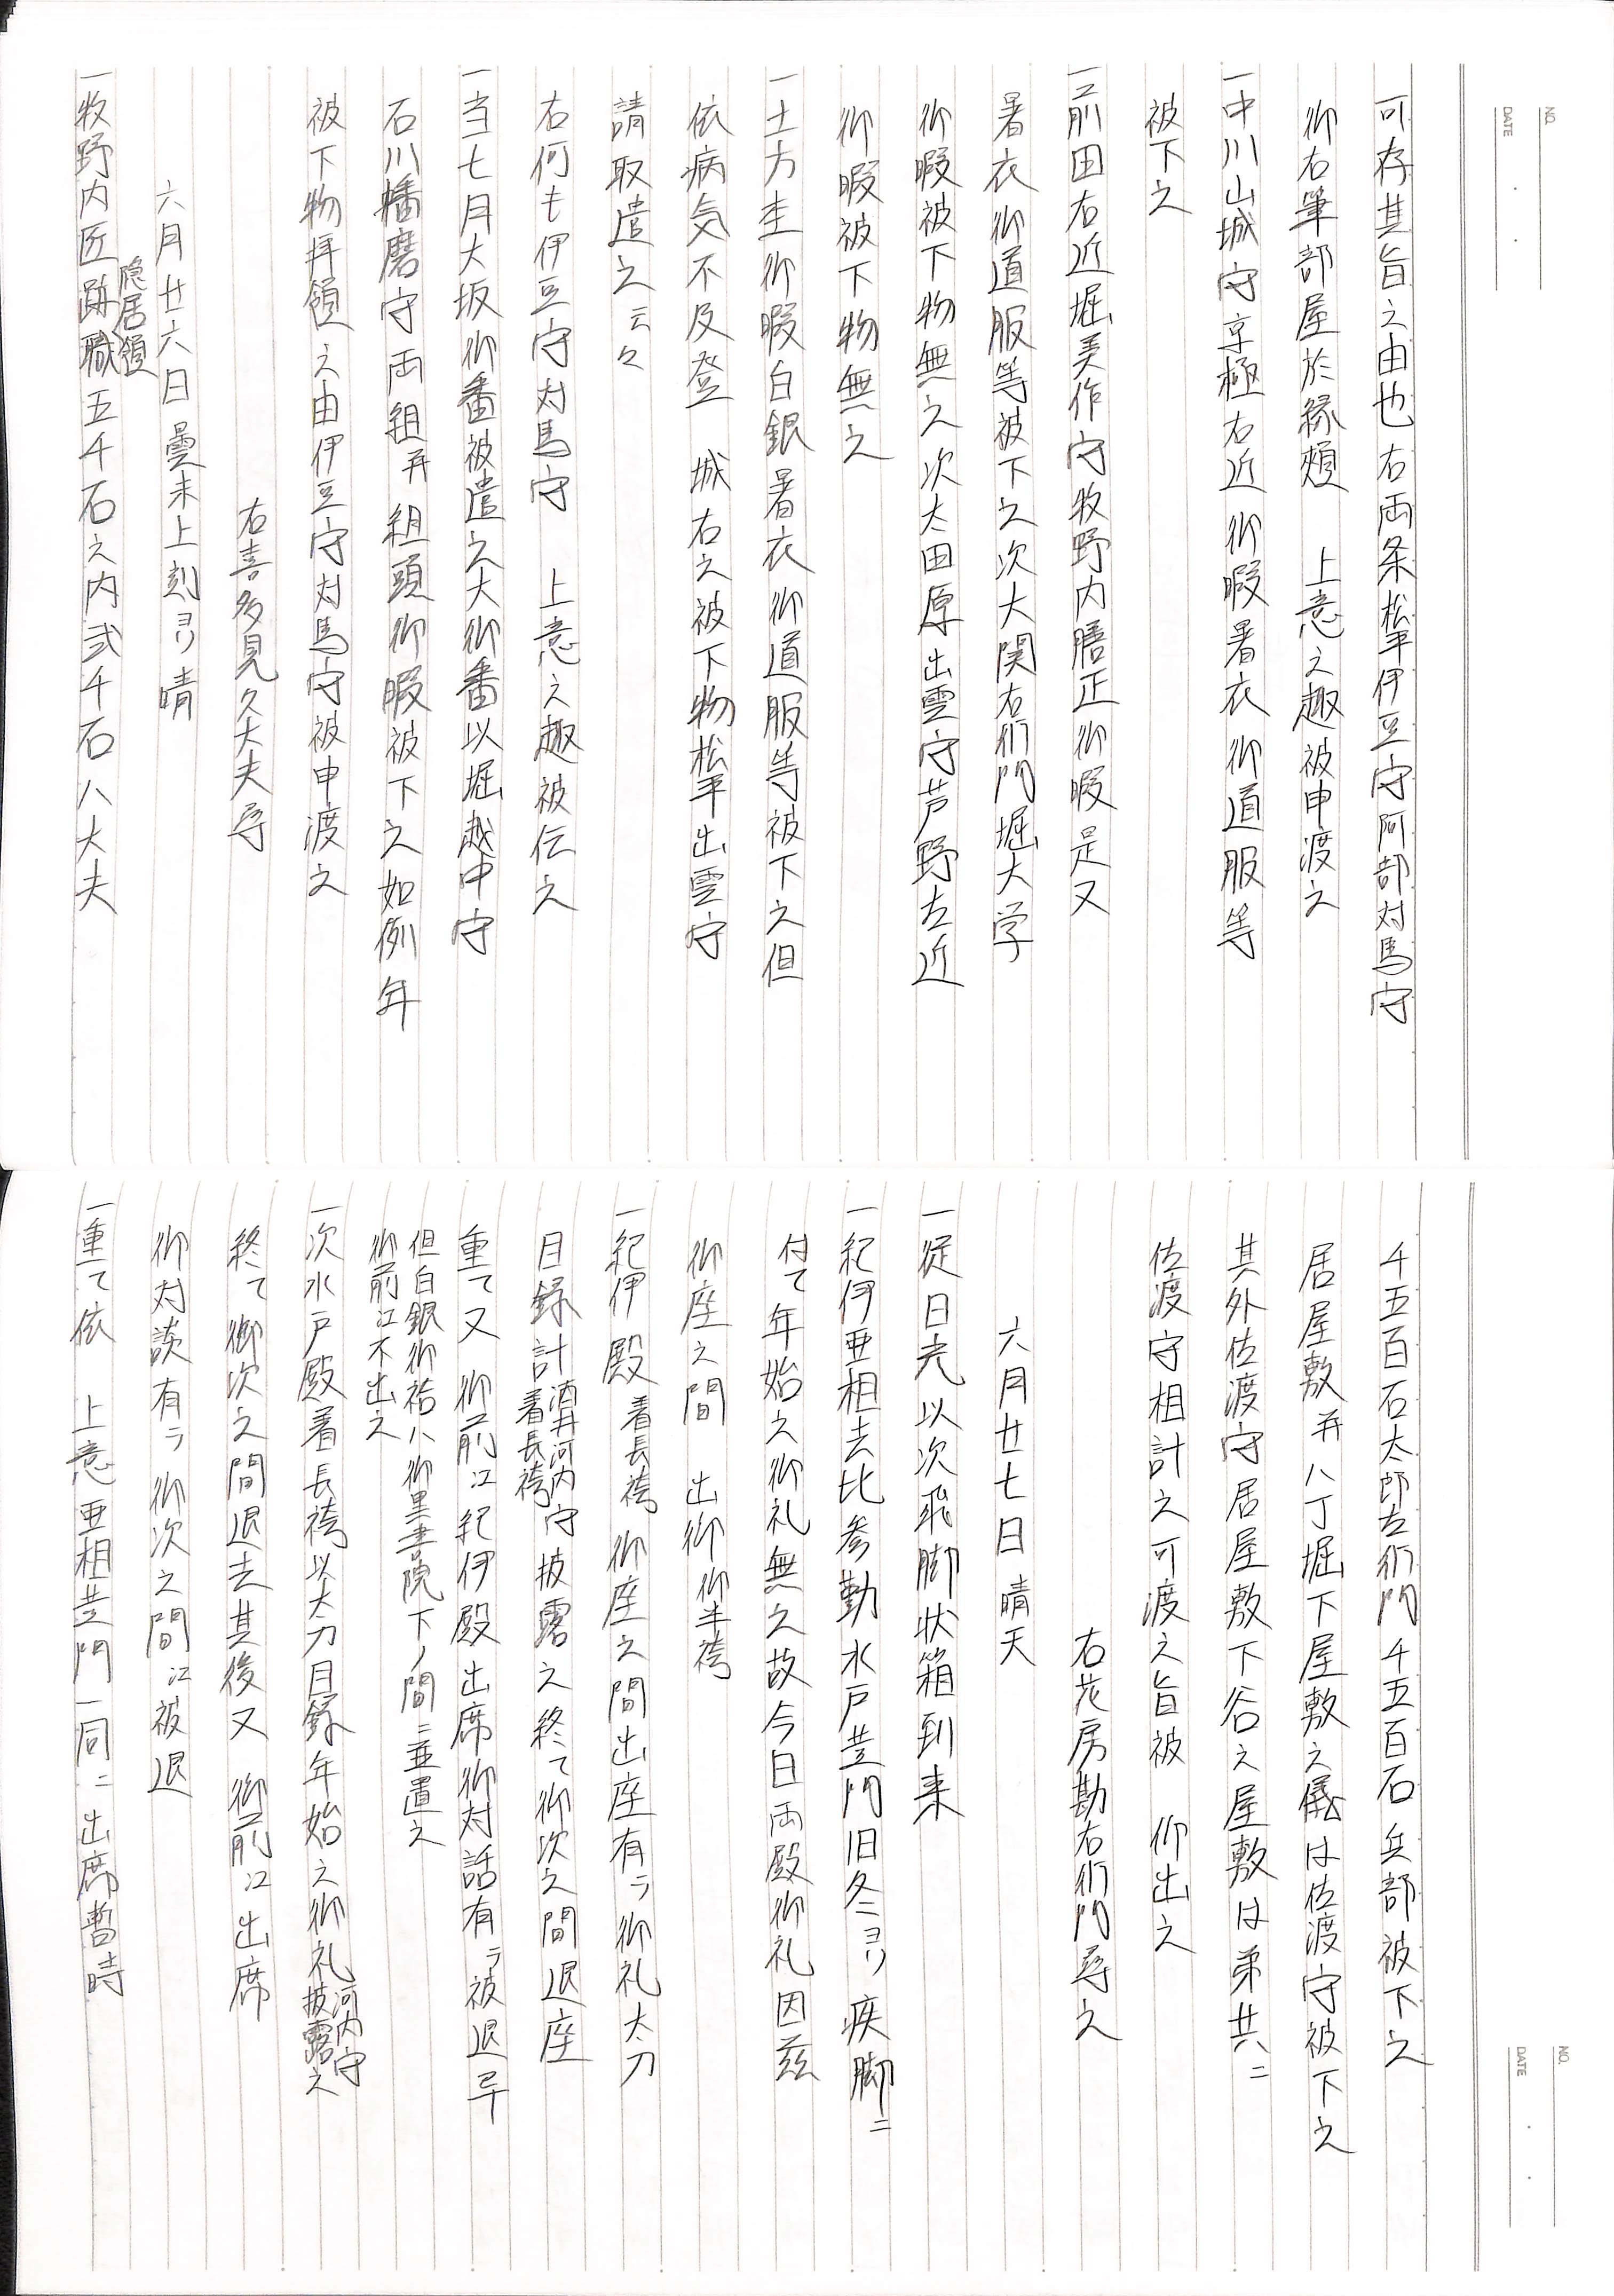 NO.
DATE
可存其旨之由也右両条松平伊豆守阿部対馬守
御右筆部屋於縁頬　上意之趣被申渡之
一中川山城守京極右近御暇暑衣御道服等
被下之
一前田右近堀美作守牧野内膳正御暇是又
暑衣御道服等被下之次大関右衛門堀大学
御暇被下物無之次太田原出雲守芦野左近
御暇被下物無之
一土方杢御暇白銀暑衣御道服等被下之但
依病気不及登　城右之被下物松平出雲守
請取遣之云々
右何も伊豆守対馬守　上意之趣被伝之
一当七月大坂御番被遣之大御番以堀越中守
石川播磨守両組并組頭御暇被下之如例年
被下物拝領之由伊豆守対馬守被申渡之
右喜多見久大夫尋
六月廿六日曇未上刻ヨリ晴
隠居領
一牧野内匠跡職五千石之内弐千石八大夫
NO.
DATE
千五百石太郎左衛門千五百石兵部被下之
居屋敷并八丁堀下屋敷之儀は佐渡守被下之
其外佐渡守居屋敷下谷之屋敷は弟共ニ
佐渡守相計之可渡之旨被　仰出之
右花房勘右衛門尋之
六月廿七日晴天
一従日光以次飛脚状箱到来
一紀伊亜相去比参勤水戸黄門旧冬ヨリ疾脚ニ
付て年始之御礼無之故今日両殿御礼因茲
御座之間　出御御半袴
一紀伊殿着長袴御座之間出座有ラ御礼太刀
目録計酒井河内守着長袴披露之終て御次之間退座
重て又　御前江紀伊殿出席御対話有ラ被退畢
但白銀御袷ハ御黒書院下ノ間ニ並置之
御前江不出之
一次水戸殿着長袴以太刀目録年始之御礼河内守披露之
終て御次之間退去其後又　御前江出席
御対談有ラ御次之間江被退
一重て依　上意亜相黄門一同ニ出席暫時